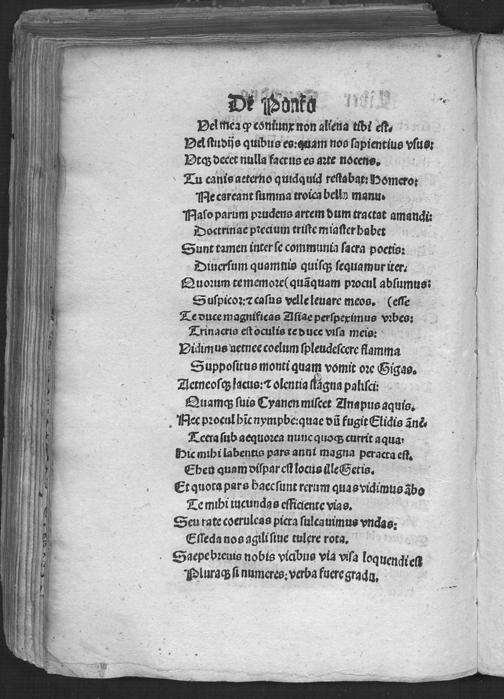 De Ponto
Vel mea ꝙ coniunx non aliena tibi est.
Vel studijs quibus es: quam nos sapientius vsus:
Vtqꝫ decet nulla factus es arte nocens.
Tu canis aeterno quidquid restabat: Homero:
Ne careant summa troica bella manu.
Naso parum prudens artem dum tractat amandi:
Doctrinae precium triste miaster habet
Sunt tamen inter se communia sacra poetis:
Diuersum quamuis quisqꝫ sequamur iter.
Quorum te memore (quāquam procul absumus:
Suspicor: ⁊ casus velle leuare meos. (esse
Te duce magnificas Asiae perspeximus vrbes:
Trinacris est oculis te duce visa meis:
Vidimus aetnee coelum spleudescere flamma
Suppositus monti quam vomit ore Gigas.
Aetneosqꝫ lacus: ⁊ olentia stagna palisci:
Quamqꝫ suis Cyanen miscet Anapus aquis.
Nec procul hīc nymphe: quae dū fugit Elidis ānē.
Tecta sub aequorea nunc quoqꝫ currit aqua.
Hic mihi labentis pars anni magna peracta est.
Eheu quam dispar est locus ille Getis.
Et quota pars haec sunt rerum quas vidimus ābo
Te mihi iucundas efficiente vias.
Seu rate coeruleas picta sulcauimus vndas:
Esseda nos agili siue tulere rota.
Saepe breuis nobis vicibus via visa loquendi est
Pluraqꝫ si numeres: verba fuere gradu.